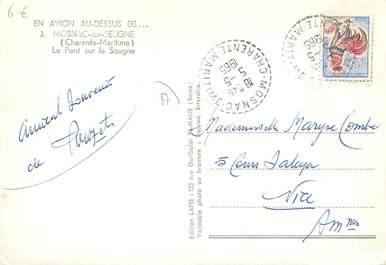 6€
EN AVION AU-DESSUS DE...
3. MOSNAC-sur-SEUGNE
(Charente-Maritime)
Le Pont sur la Seugne
Amical Souvenir
de
MOSNAC
CHARENTE-MARITIME
18-5
1965
Edition LAPIE - 123 rue Garibaldi St-MAUR (Seine)
Véritable photo au bromure - Reprod. Interdite.
Mademoiselle Maryse Combe
5 Cours Saleya
Nice
Am mes